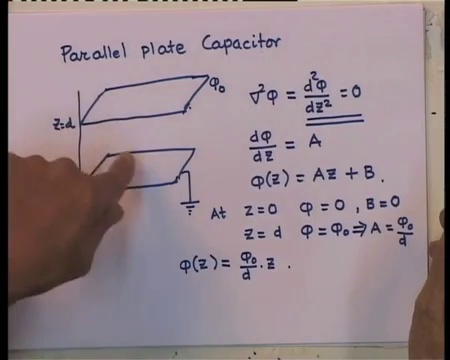 Parallel plate Capacitor
φ₀
z=d
∇²φ = d²φ/dz² = 0
dφ/dz = A
φ(z) = Az + B.
At z=0 φ=0, B=0
z=d φ=φ₀ ⇒ A = φ₀/d
φ(z) = φ₀/d · z .